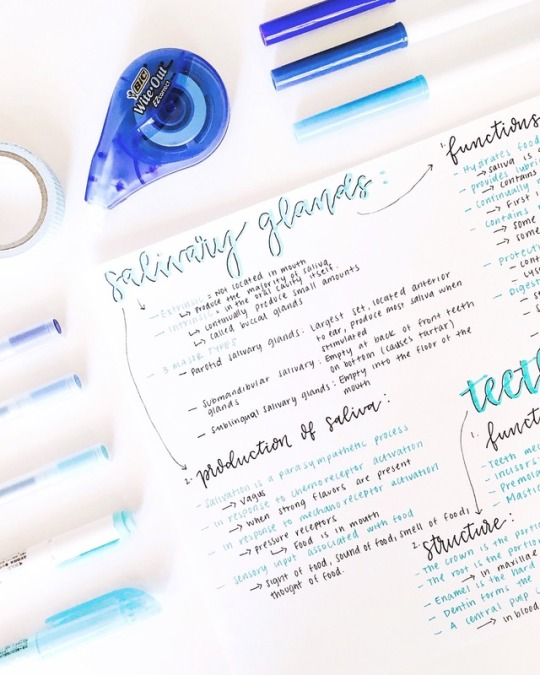 BIC
Wite·Out
EZ correct
salivary glands:
- Extrinsic = Not located in mouth
↳ Produce the majority of saliva
- Intrinsic = in the oral cavity itself.
↳ continually produce small amounts
↳ called buccal glands
- 3 MAJOR TYPES
- Parotid salivary glands: Largest set, located anterior
to ear, produce most saliva when
stimulated
- Submandibular salivary: Empty at back of front teeth
glands on bottom (causes tartar)
- Sublingual salivary glands: Empty into the floor of the
mouth
2. production of saliva:
- Salivation is a parasympathetic process
→ Vagus
- In response to chemoreceptor activation
→ When strong flavors are present
- In response to mechanoreceptor activation
→ pressure receptors
↳ Food is in mouth
- Sensory input associated with food
→ Sight of food, sound of food, smell of food,
thought of food.
1. functions
- Hydrates food
→ saliva is
- provides lubri
→ contains
- Continually
→ First
- contains
→ some
→ some
- Protect
→ cont
→ lys
- Digest
teeth
1. funct
- Teeth me
- Incisors
- Premola
- Mastic
2. structure:
- The crown is the portio
- The root is the portio
→ in maxillae
- Enamel is the hard
- Dentin forms the
- A central pulp
→ in blood